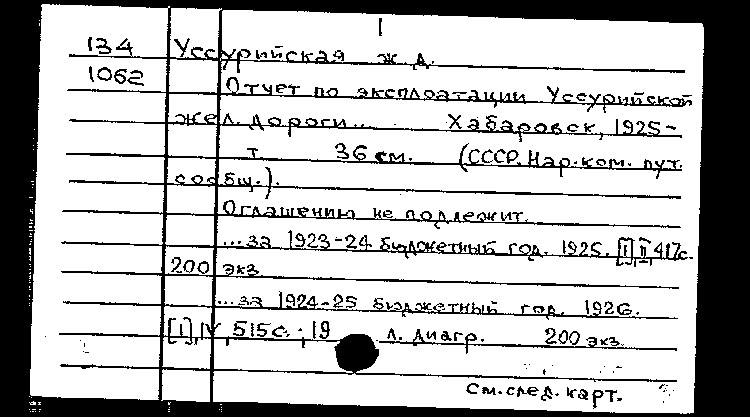 134 Уссурийская ж. д.
1062 Отчет по эксплоатации Уссурийской
жел. дороги... Хабаровск, 1925-
т. 36 см. (СССР. Нар.ком. пут.
сообщ.).
Оглашению не подлежит.
...за 1923-24 бюджетный год. 1925. [I], II, 417с.
200 экз.
...за 1924-25 бюджетный год. 1926.
[I], IV, 515с.; 19 л. диагр. 200 экз.
См.след.карт.